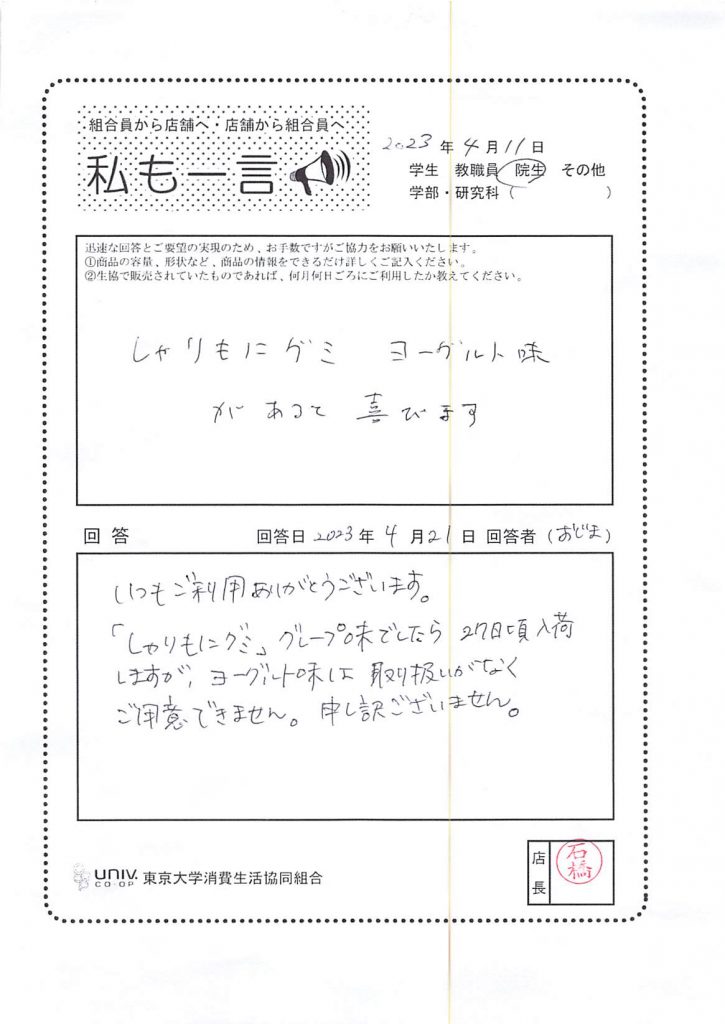 組合員から店舗へ・店舗から組合員へ
私も一言
2023 年 4 月 11 日
学生 教職員 院生 その他
学部・研究科 ( )
迅速な回答とご要望の実現のため、お手数ですがご協力をお願いいたします。
①商品の容量、形状など、商品の情報をできるだけ詳しくご記入ください。
②生協で販売されていたものであれば、何月何日ごろにご利用したか教えてください。
しゃりもにグミ ヨーグルト味
が あると 喜びます
回答 回答日 2023 年 4 月 21 日 回答者 (おじま)
いつもご利用ありがとうございます。
「しゃりもにグミ」グレープ味でしたら 27日頃入荷
しますが、ヨーグルト味は 取り扱いがなく
ご用意できません。申し訳ございません。
UNIV. CO-OP 東京大学消費生活協同組合
店長 石橋